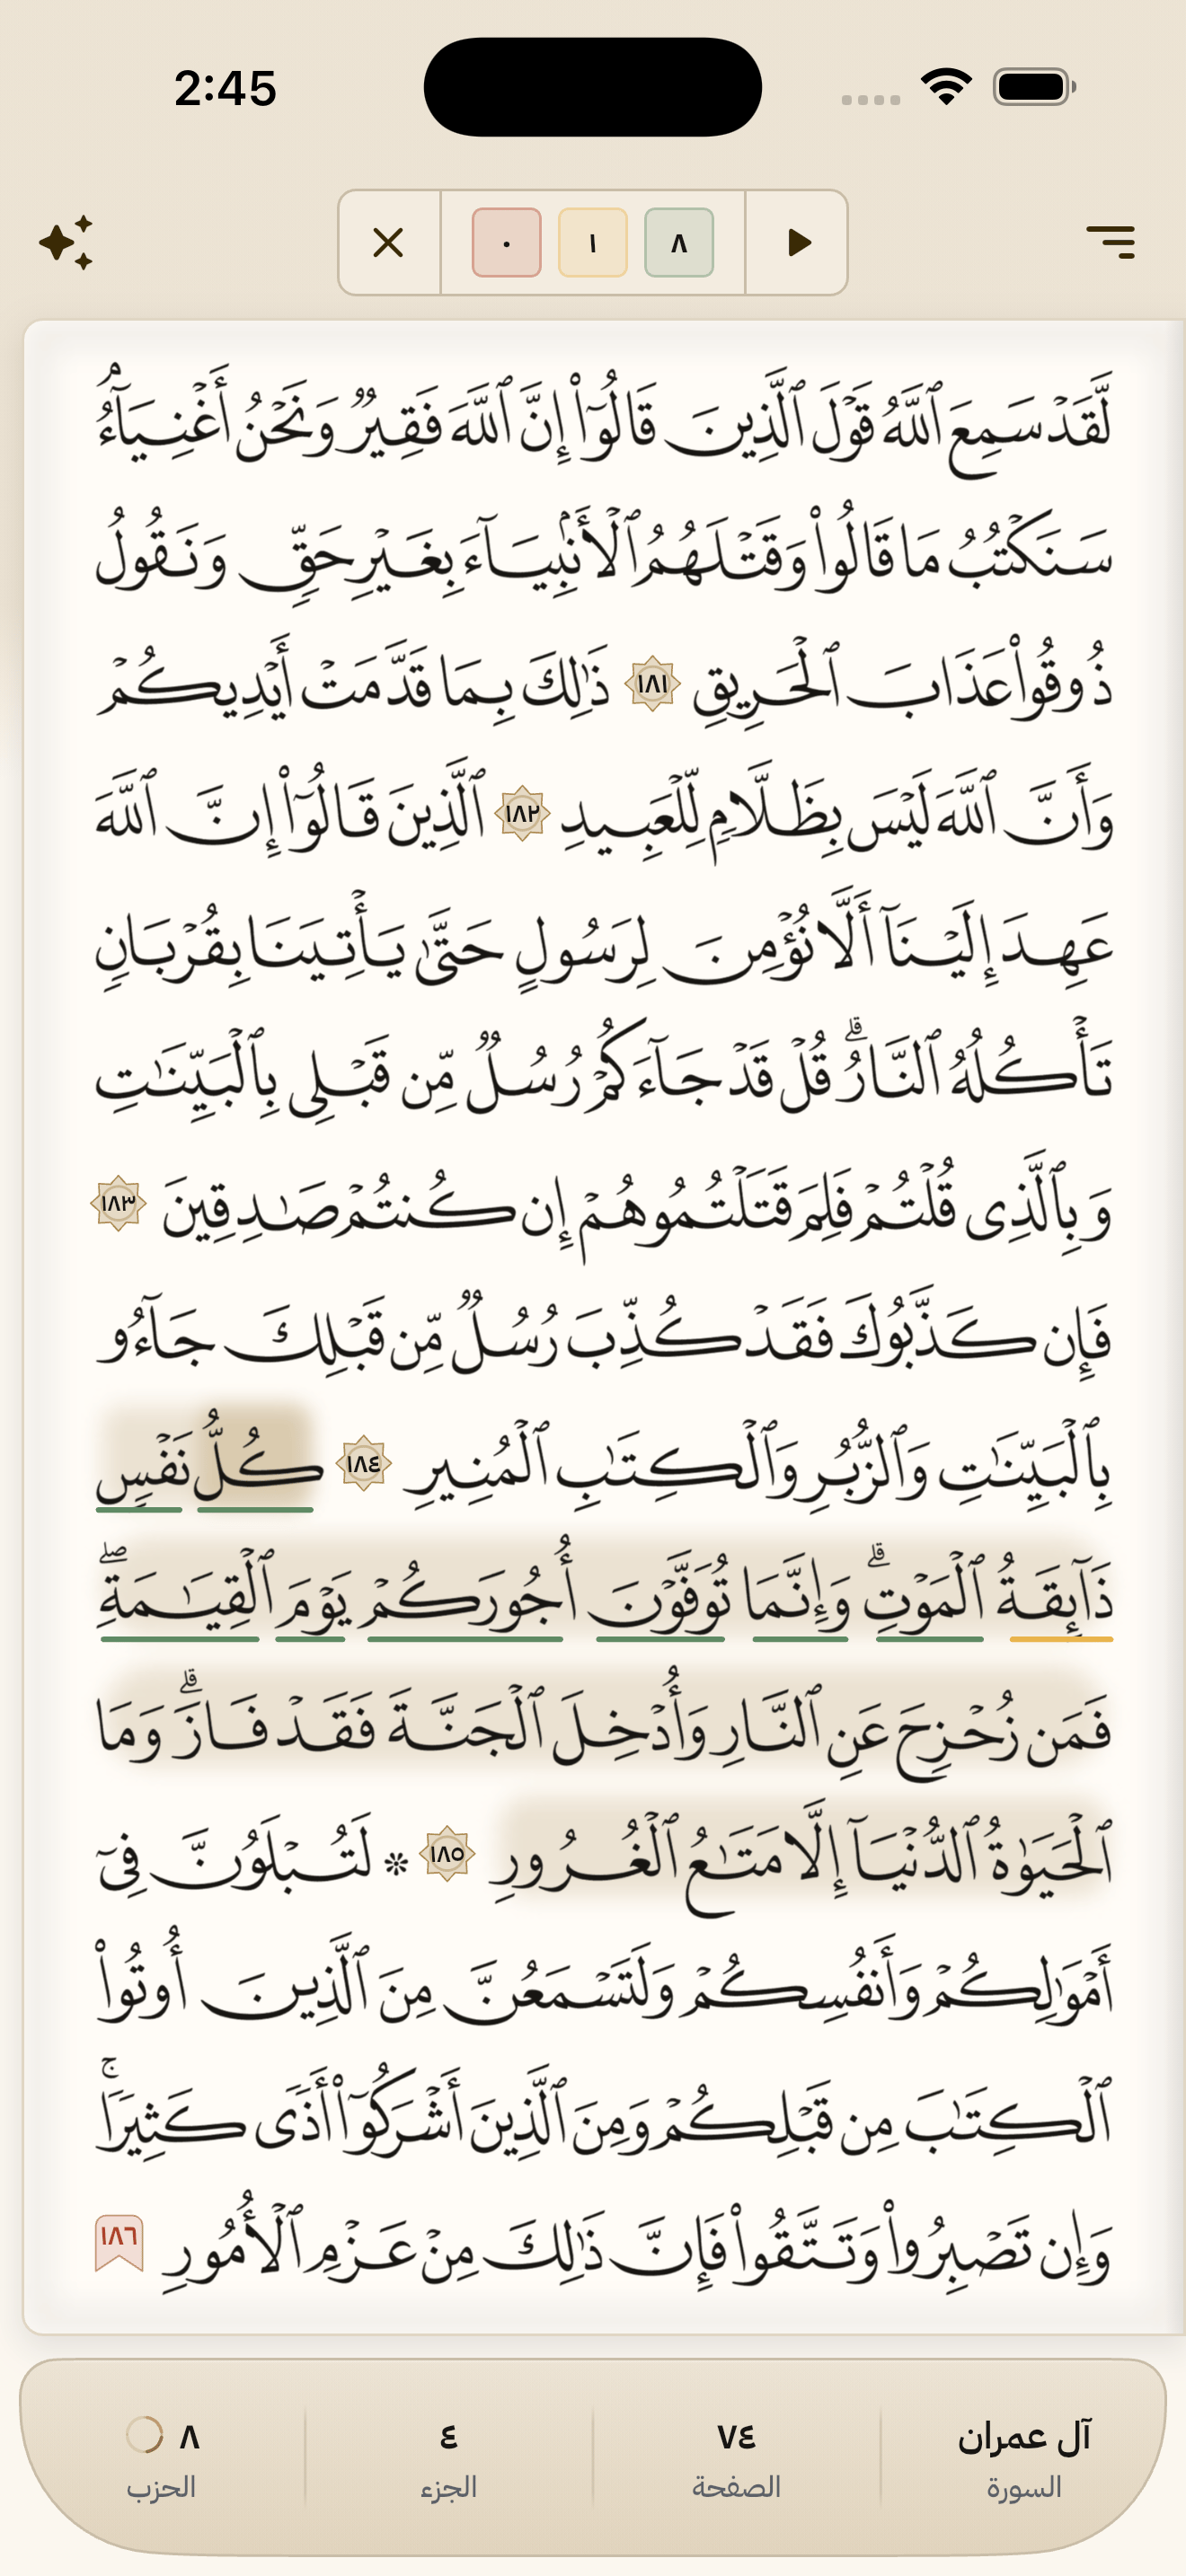 2:45
٠ ١ ٨
لَّقَدْ سَمِعَ ٱللَّهُ قَوْلَ ٱلَّذِينَ قَالُوٓا۟ إِنَّ ٱللَّهَ فَقِيرٌ وَنَحْنُ أَغْنِيَآءُ ۘ
سَنَكْتُبُ مَا قَالُوا۟ وَقَتْلَهُمُ ٱلْأَنۢبِيَآءَ بِغَيْرِ حَقٍّ وَنَقُولُ
ذُوقُوا۟ عَذَابَ ٱلْحَرِيقِ ١٨١ ذَٰلِكَ بِمَا قَدَّمَتْ أَيْدِيكُمْ
وَأَنَّ ٱللَّهَ لَيْسَ بِظَلَّامٍ لِّلْعَبِيدِ ١٨٢ ٱلَّذِينَ قَالُوٓا۟ إِنَّ ٱللَّهَ
عَهِدَ إِلَيْنَآ أَلَّا نُؤْمِنَ لِرَسُولٍ حَتَّىٰ يَأْتِيَنَا بِقُرْبَانٍ
تَأْكُلُهُ ٱلنَّارُ ۗ قُلْ قَدْ جَآءَكُمْ رُسُلٌ مِّن قَبْلِى بِٱلْبَيِّنَٰتِ
وَبِٱلَّذِى قُلْتُمْ فَلِمَ قَتَلْتُمُوهُمْ إِن كُنتُمْ صَٰدِقِينَ ١٨٣
فَإِن كَذَّبُوكَ فَقَدْ كُذِّبَ رُسُلٌ مِّن قَبْلِكَ جَآءُو
بِٱلْبَيِّنَٰتِ وَٱلزُّبُرِ وَٱلْكِتَٰبِ ٱلْمُنِيرِ ١٨٤ كُلُّ نَفْسٍ
ذَآئِقَةُ ٱلْمَوْتِ ۗ وَإِنَّمَا تُوَفَّوْنَ أُجُورَكُمْ يَوْمَ ٱلْقِيَٰمَةِ ۖ
فَمَن زُحْزِحَ عَنِ ٱلنَّارِ وَأُدْخِلَ ٱلْجَنَّةَ فَقَدْ فَازَ ۗ وَمَا
ٱلْحَيَوٰةُ ٱلدُّنْيَآ إِلَّا مَتَٰعُ ٱلْغُرُورِ ١٨٥ * لَتُبْلَوُنَّ فِىٓ
أَمْوَٰلِكُمْ وَأَنفُسِكُمْ وَلَتَسْمَعُنَّ مِنَ ٱلَّذِينَ أُوتُوا۟
ٱلْكِتَٰبَ مِن قَبْلِكُمْ وَمِنَ ٱلَّذِينَ أَشْرَكُوٓا۟ أَذًى كَثِيرًا ۚ
وَإِن تَصْبِرُوا۟ وَتَتَّقُوا۟ فَإِنَّ ذَٰلِكَ مِنْ عَزْمِ ٱلْأُمُورِ ١٨٦
آل عمران ٧٤ ٤ ٨
السورة الصفحة الجزء الحزب